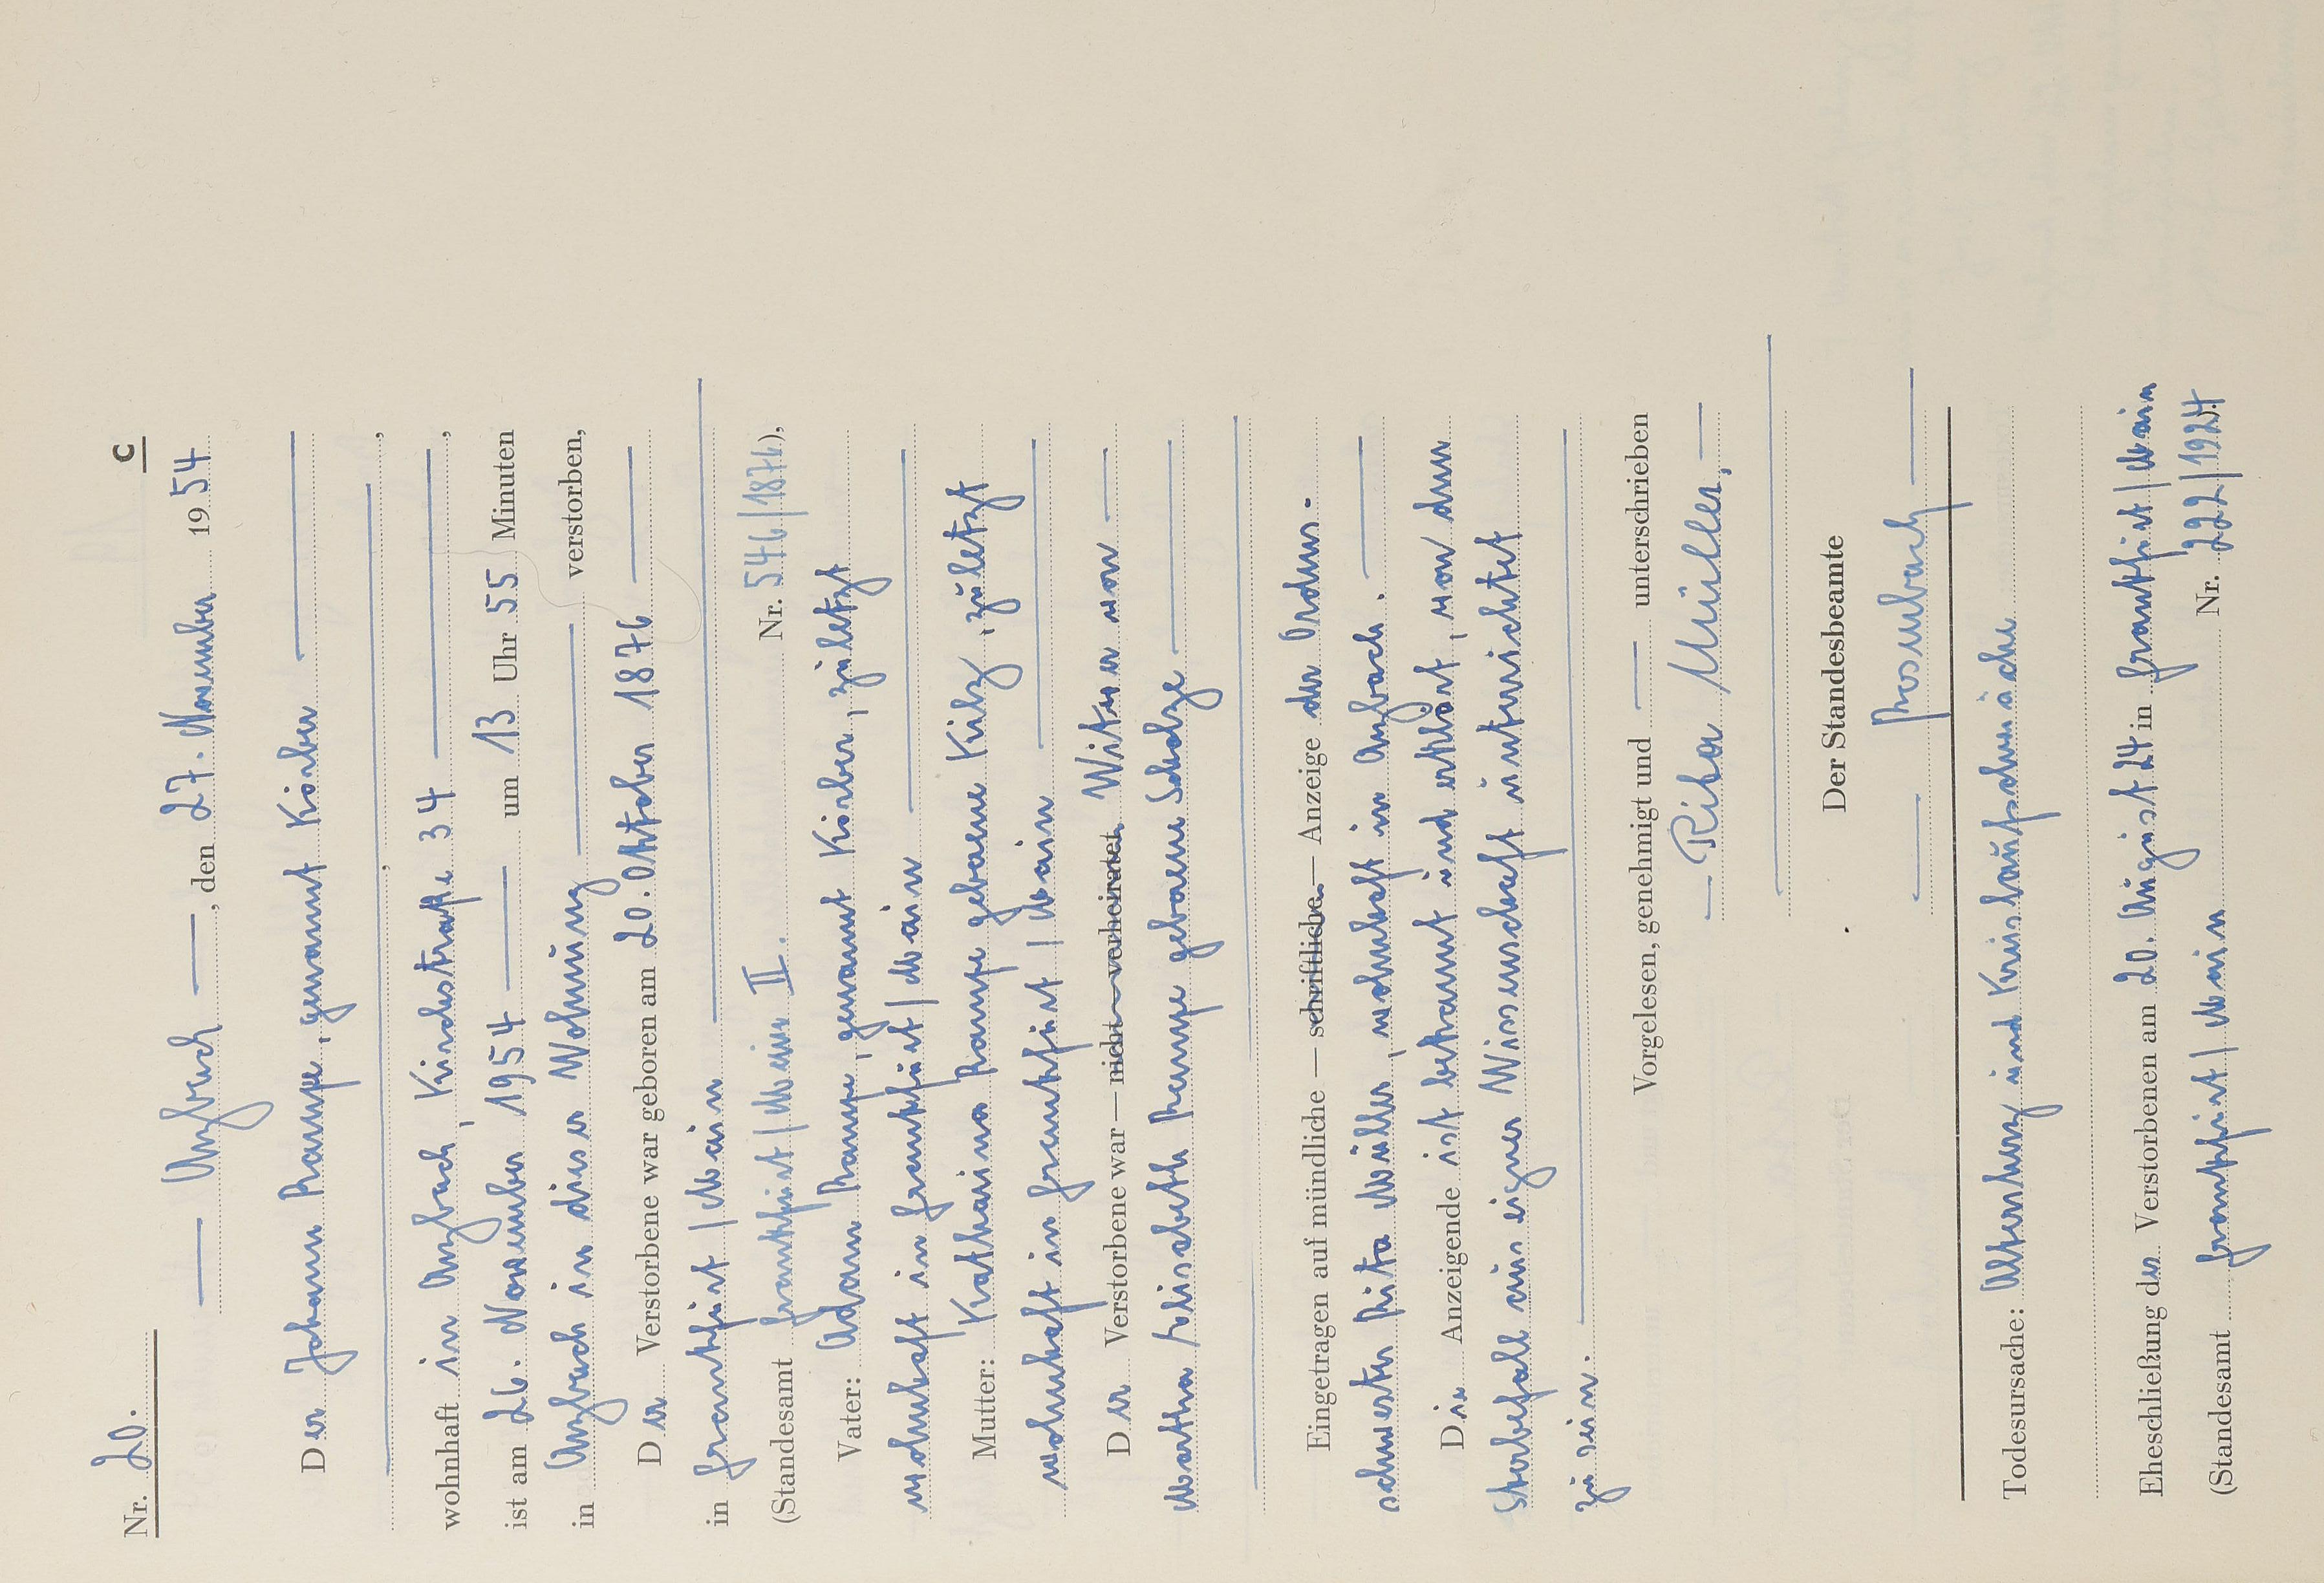 Nr. 20.
C
Anzbach, den 27. November 1954
Der Johann Rampe, genannt Körber
,
wohnhaft in Anzbach, Kirchstraße 34,
ist am 26. November 1954 um 13 Uhr 55 Minuten
in Anzbach in dieser Wohnung verstorben,
Der Verstorbene war geboren am 20. Oktober 1876
in Frankfurt/Main
(Standesamt Frankfurt/Main II. Nr. 546/1876),
Vater: Adam Rampe, genannt Körber, zuletzt
wohnhaft in Frankfurt/Main
Mutter: Katharina Rampe geborene Kilz, zuletzt
wohnhaft in Frankfurt/Main
Der Verstorbene war — nicht verheiratet Witwer von
Martha Lisabeth Rampe geborene Scholze
Eingetragen auf mündliche — schriftliche — Anzeige der Ordens-
schwester Rita Müller, wohnhaft in Anzbach.
Die Anzeigende ist bekannt und erklärt, von dem
Sterbefall aus eigner Wissenschaft unterrichtet
zu sein.
Vorgelesen, genehmigt und — unterschrieben
— Rita Müller, —
Der Standesbeamte
— Rosenbach —
Todesursache: Altersherz und Kreislaufschwäche
Eheschließung des Verstorbenen am 20. August 24 in Frankfurt/Main
(Standesamt Frankfurt/Main Nr. 222/1924)